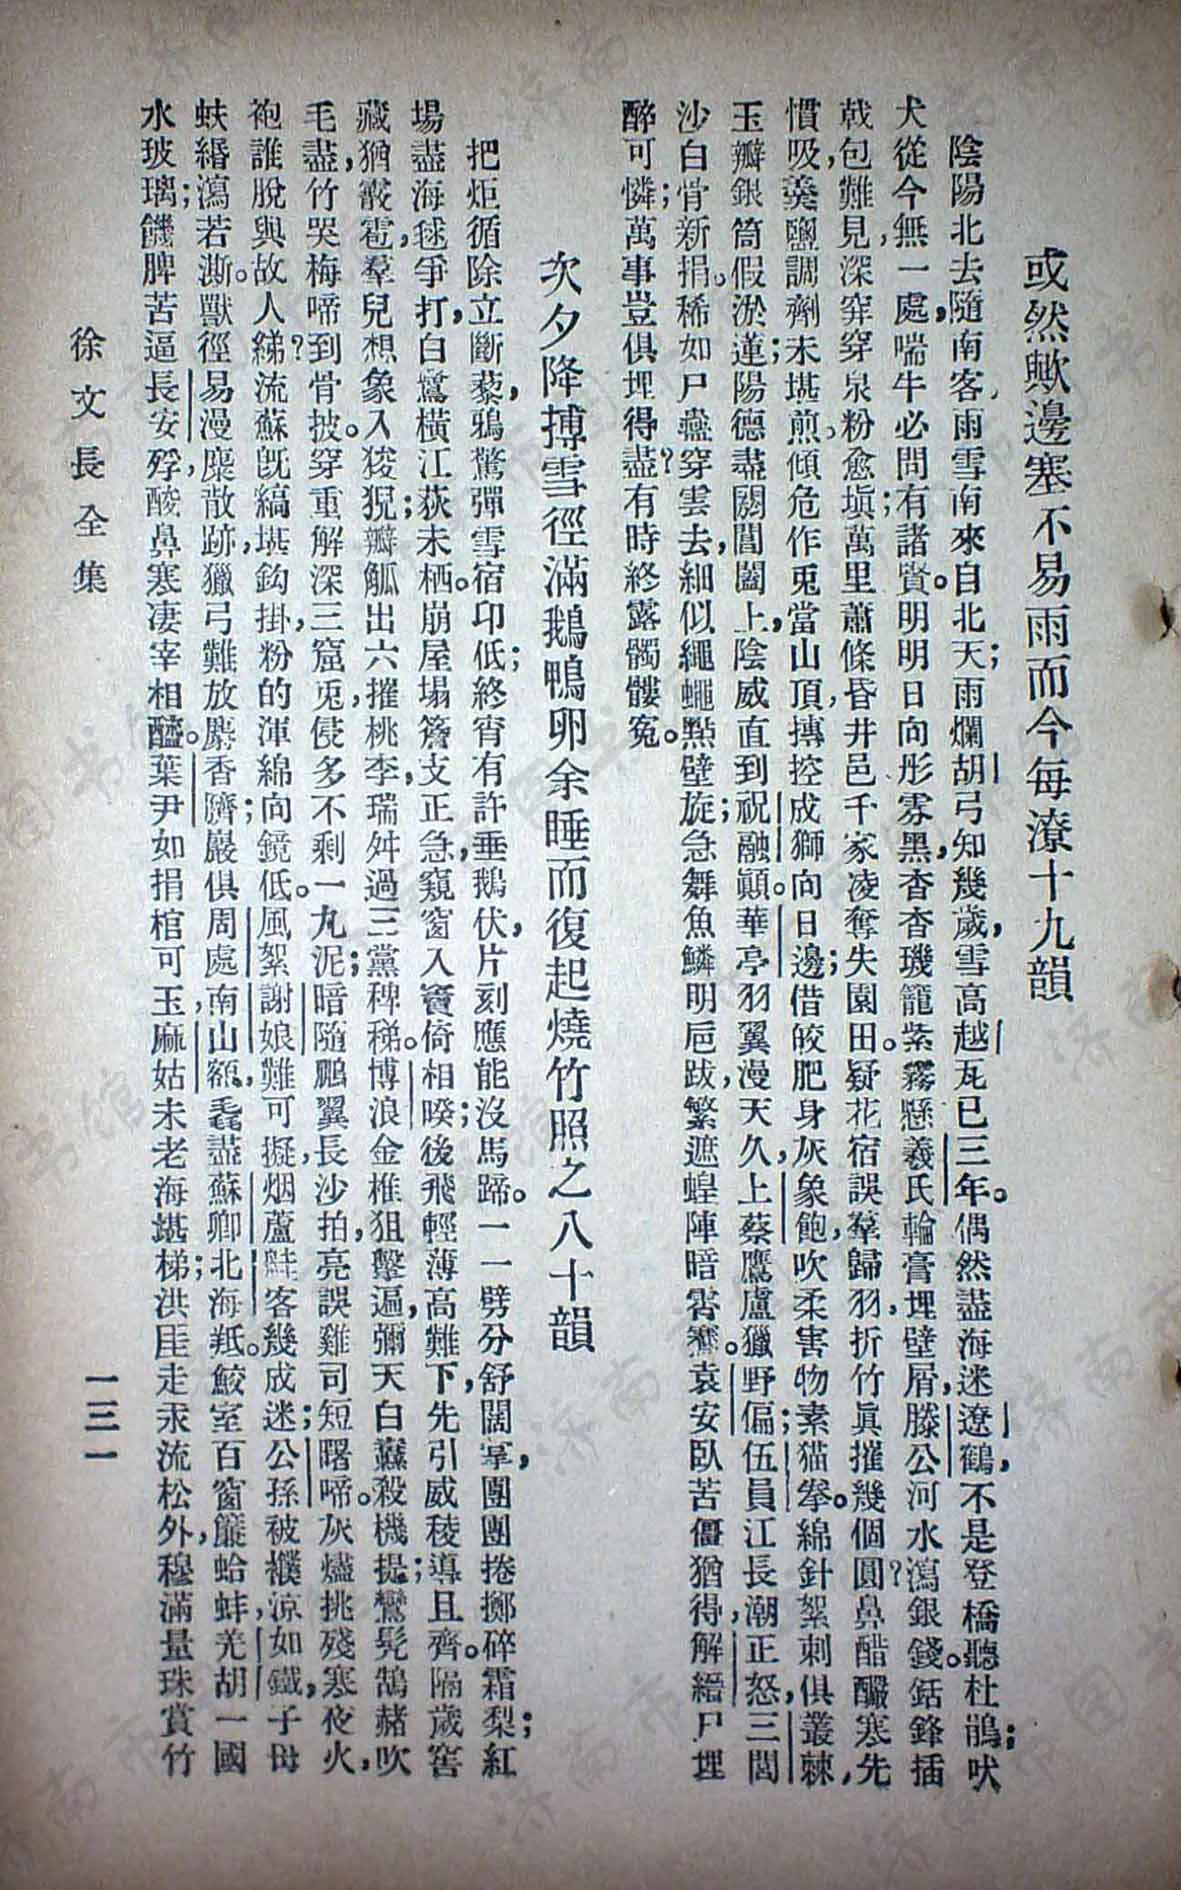 或然歟邊塞不易雨而今每潦十九韻
陰陽北去隨南客，雨雪南來自北天；雨爛胡弓知幾歲，雪高越瓦已三年。偶然盡海迷遼鶴，不是登橋聽杜鵑；吠
犬從今無一處，喘牛必問有諸賢。明明日向彤雰黑，杳杳璣籠紫霧懸；羲氏輪膏埋壁屑，滕公河水瀉銀錢。銛鋒插
戟包難見，深穽穿泉粉愈塡；萬里蕭條昏井邑，千家凌奪失園田。疑花宿誤羣歸羽，折竹眞摧幾個圓？鼻醋釅寒先
慣吸，羹鹽調劑未堪煎。傾危作兎當山頂，摶控成獅向日邊；借皎肥身灰象飽，吹柔害物素猫拳。綿針絮刺俱叢棘，
玉瓣銀筒假淤蓮；陽德盡閼閶闔上，陰威直到祝融顚。華亭羽翼漫天久，上蔡鷹盧獵野偏；伍員江長潮正怒，三閭
沙白骨新捐。稀如尸蠱穿雲去，細似繩蠅點壁旋；急舞魚鱗明巵跋，繁遮蝗陣暗霄騫。袁安臥苦僵猶得，解縉尸埋
醉可憐；萬事豈俱埋得盡？有時終露髑髏冤。
次夕降摶雪徑滿鵝鴨卵余睡而復起燒竹照之八十韻
把炬循除立斷藜，鴉驚彈雪宿印低；終宵有許垂鵝伏，片刻應能沒馬蹄。一一劈分舒闊寡，團團捲擲碎霜梨；紅
場盡海毬爭打，白鷺橫江荻未栖。崩屋塌簷支正急，窺窗入竇倚相暌；後飛輕薄高難下，先引威稜導且齊。隔歲窖
藏猶霰雹，羣兒想象入狻猊；瓣觚出六摧桃李，瑞舛過三黨稗稊。博浪金椎狙擊遍，彌天白纛殺機提；鸞髡鵠赭吹
毛盡，竹哭梅啼到骨披。穿重解深三窟兎，侵多不剩一丸泥；暗隨鵬翼長沙拍，亮誤雞司短曙啼。灰燼挑殘寒夜火，
袍誰脫與故人綈？流蘇旣縞堪鈎掛，粉的渾綿向鏡低。風絮謝娘難可擬，烟蘆鮭客幾成迷；公孫被襆涼如鐵，子母
蚨緡瀉若澌。獸徑易漫麋散跡，獵弓難放麝香臍；巖俱周處南山額，毳盡蘇卿北海羝。鮫室百窗簾蛤蚌，羌胡一國
水玻璃；饑脾苦逼長安殍，酸鼻寒凄宰相醯。葉尹如捐棺可玉，麻姑未老海堪梯；洪厓走汞流松外，穆滿量珠賞竹
徐文長全集
一三一